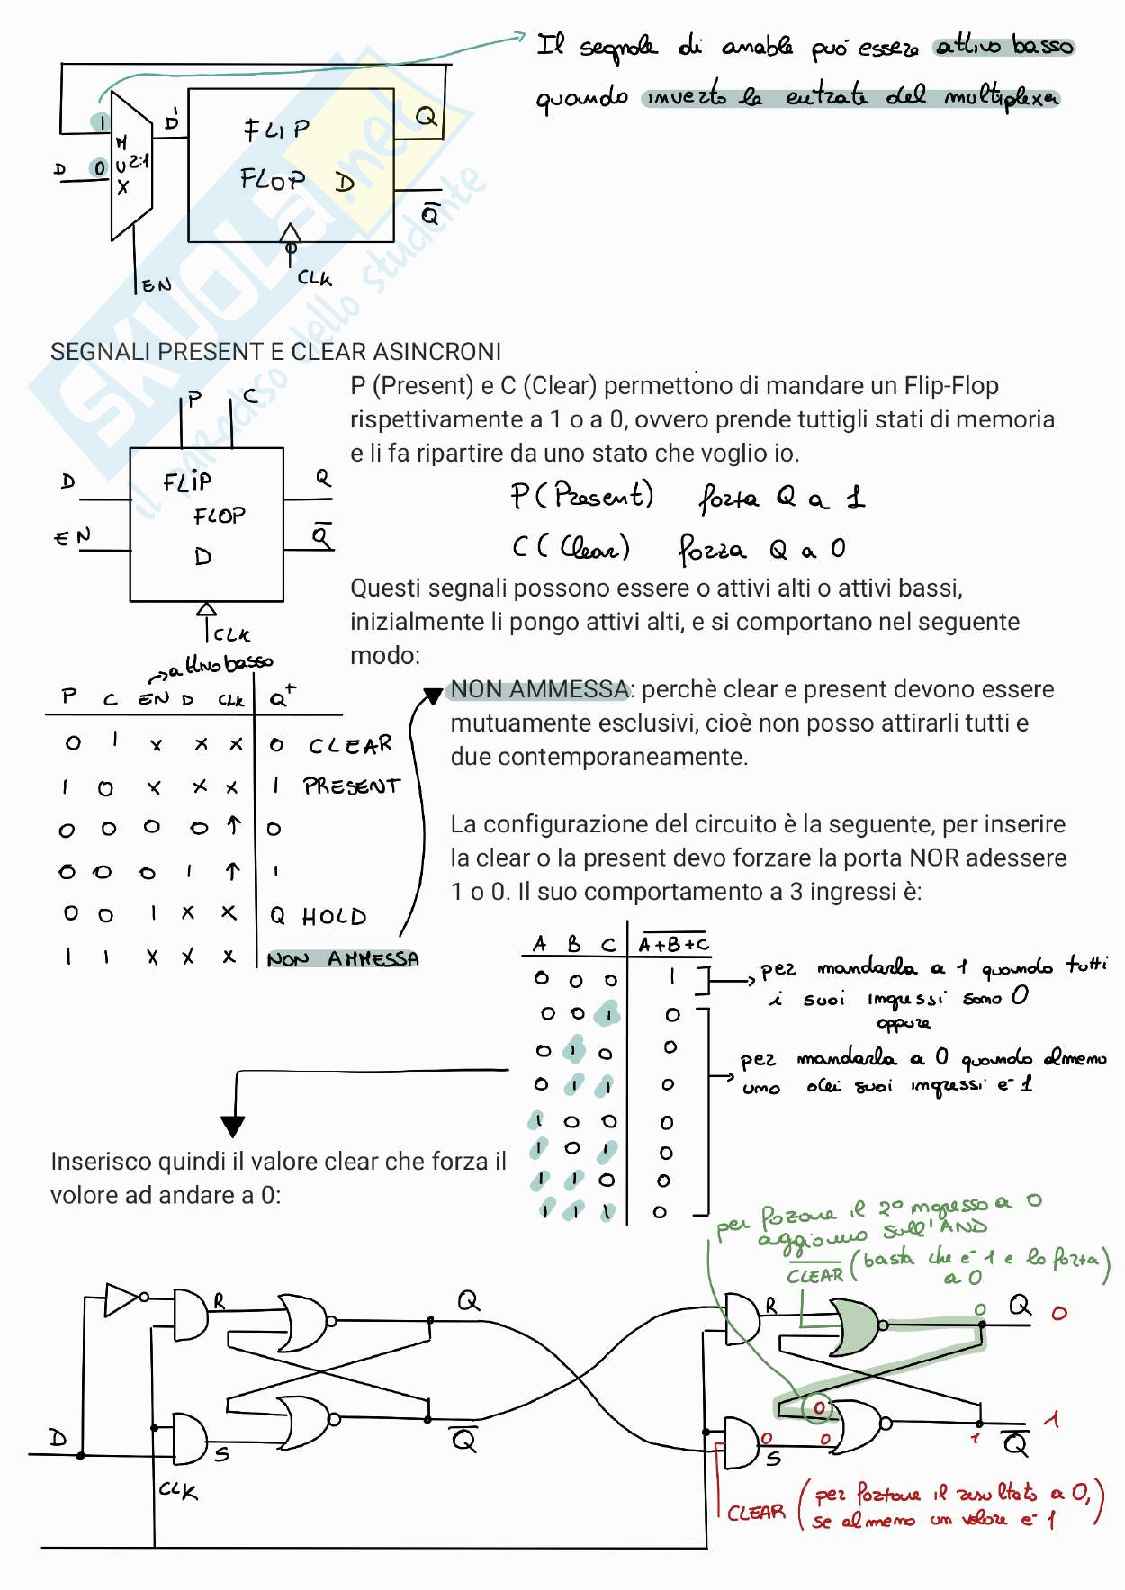 Il segnale di enable può essere attivo basso
quando inverto le entrate del multiplexer
1 D' Q
FLIP
MUX 2:1
D 0
FLOP D
Q̅
EN CLK
SKUOLA.net
il paradiso dello studente
SEGNALI PRESENT E CLEAR ASINCRONI
P C
P (Present) e C (Clear) permettono di mandare un Flip-Flop
rispettivamente a 1 o a 0, ovvero prende tuttigli stati di memoria
e li fa ripartire da uno stato che voglio io.
D FLIP Q
FLOP
EN Q̅
D
CLK
P (Present) forza Q a 1
C (Clear) forza Q a 0
Questi segnali possono essere o attivi alti o attivi bassi,
inizialmente li pongo attivi alti, e si comportano nel seguente
modo:
attivo basso
P C EN D CLK Q⁺
0 1 x x x 0 CLEAR
1 0 x x x 1 PRESENT
0 0 0 0 ↑ 0
0 0 0 1 ↑ 1
0 0 1 x x Q HOLD
1 1 x x x NON AMMESSA
NON AMMESSA: perchè clear e present devono essere
mutuamente esclusivi, cioè non posso attirarli tutti e
due contemporaneamente.
La configurazione del circuito è la seguente, per inserire
la clear o la present devo forzare la porta NOR adessere
1 o 0. Il suo comportamento a 3 ingressi è:
A B C A+B+C
0 0 0 1
0 0 1 0
0 1 0 0
0 1 1 0
1 0 0 0
1 0 1 0
1 1 0 0
1 1 1 0
per mandarla a 1 quando tutti
i suoi ingressi sono 0
oppure
per mandarla a 0 quando almeno
uno dei suoi ingressi è 1
Inserisco quindi il valore clear che forza il
volore ad andare a 0:
per forzare il 2° ingresso a 0
aggiungo sull'AND
CLEAR (basta che è 1 e lo forza)
a 0
R Q
D S Q̅
CLK
R 0 Q 0
0
0 0 1 Q̅ 1
S
CLEAR (per portare il risultato a 0,
se almeno un valore è 1)